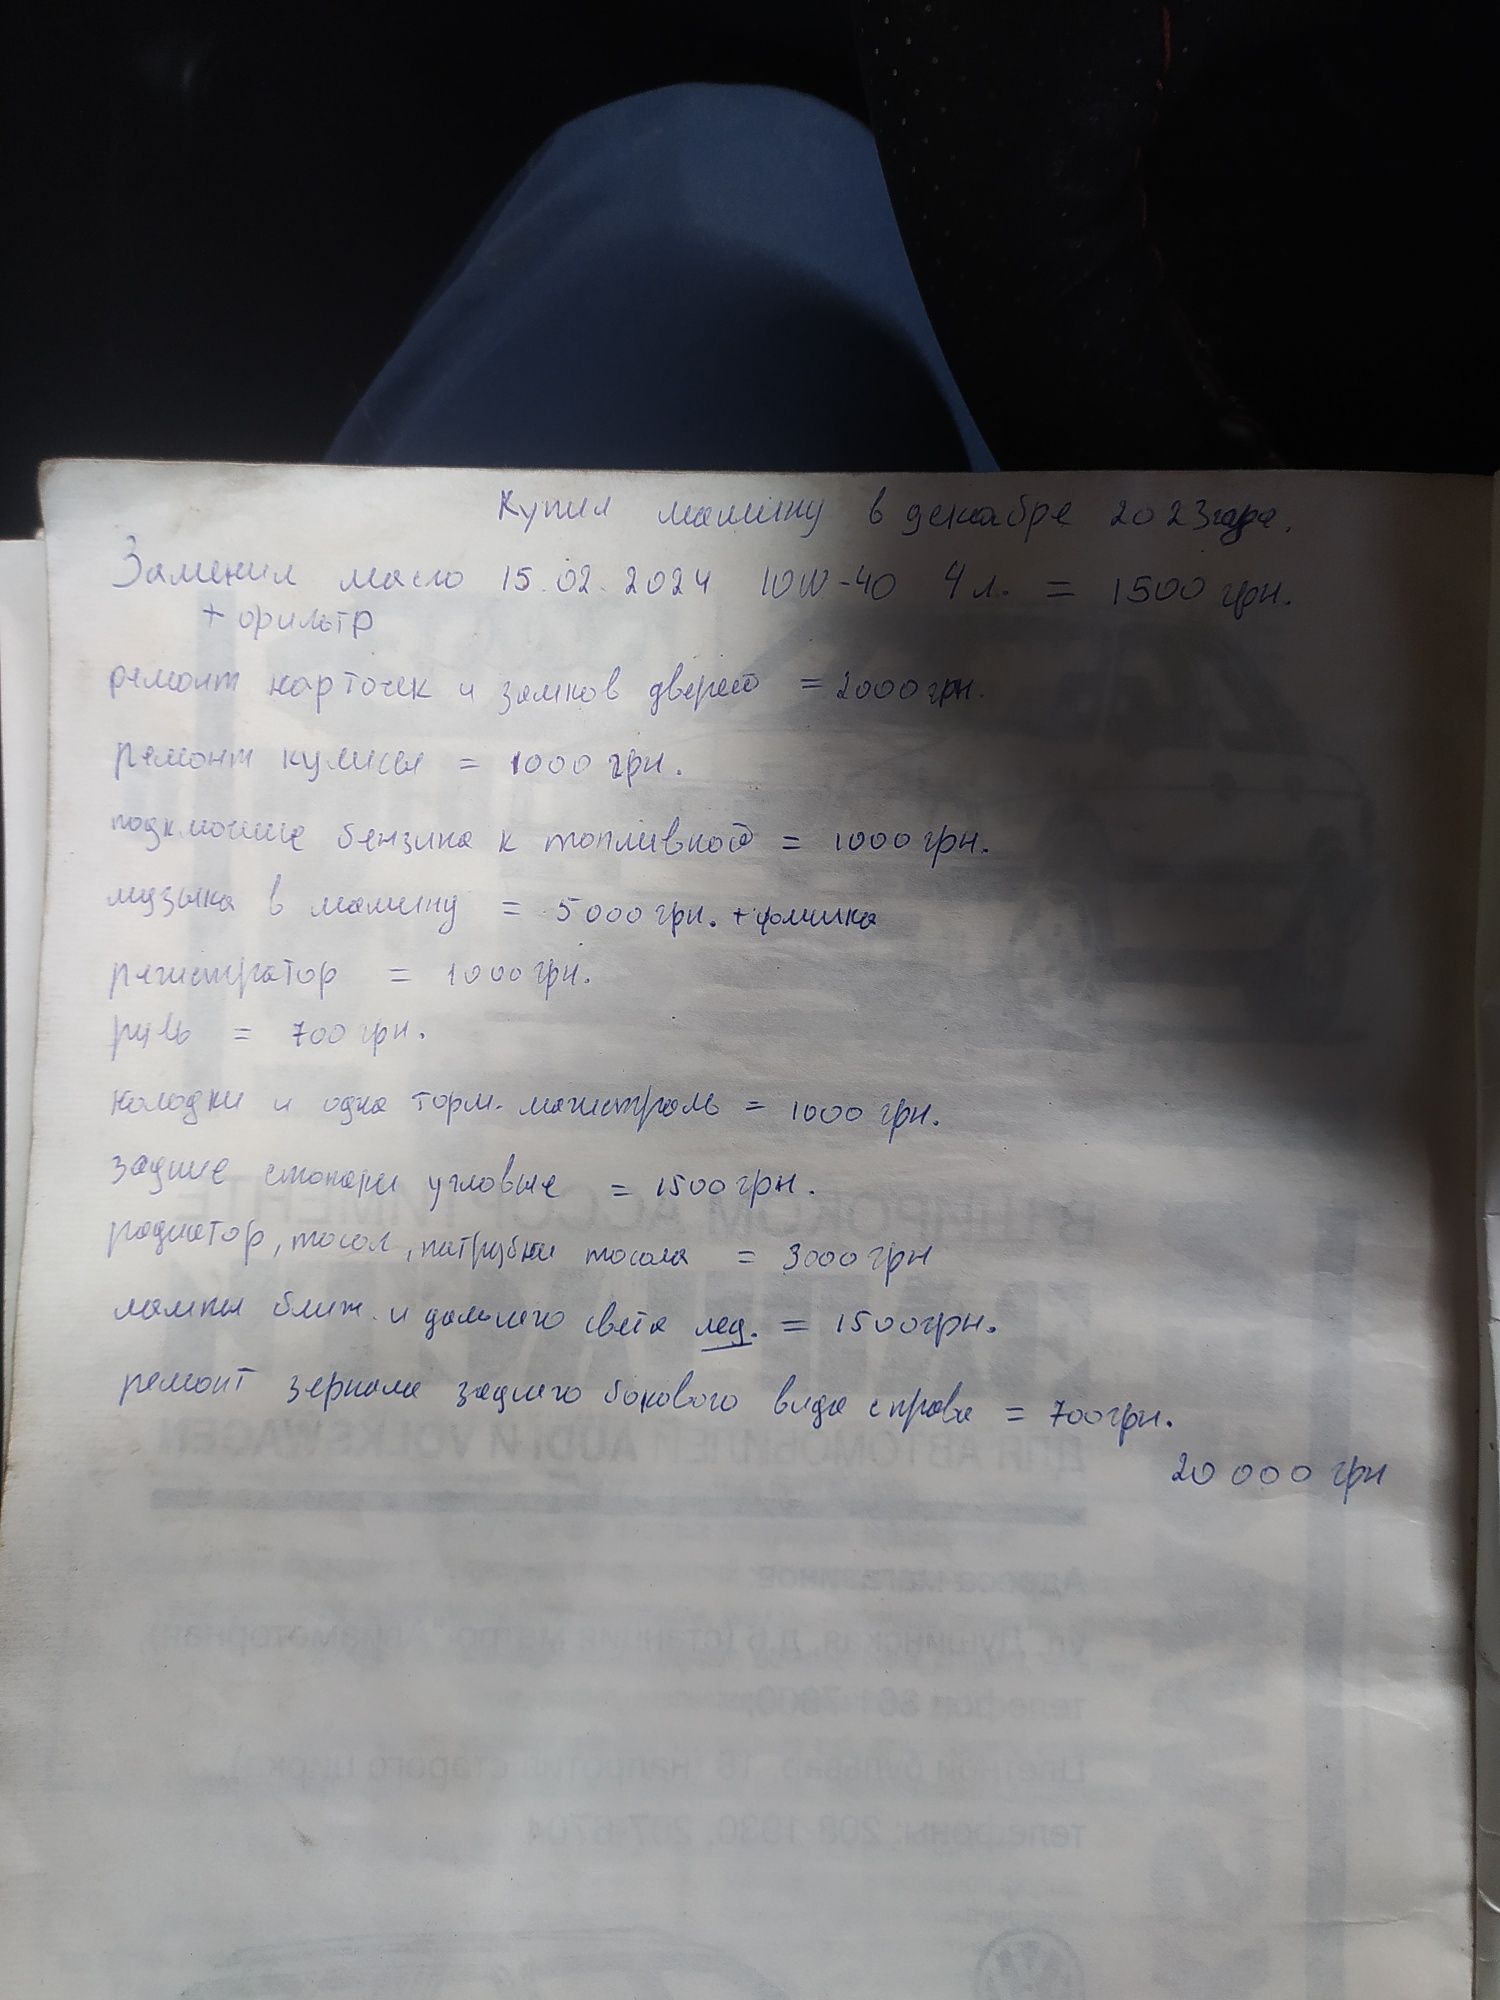 Купил машину в декабре 2023года.
Заменил масло 15.02.2024 10W-40 4л. = 1500 грн.
+ фильтр
ремонт карточек и замков дверей = 2000 грн.
ремонт кулисы = 1000 грн.
подключ бензина к топливной = 1000 грн.
музыка в машину = 5000 грн. +
регистратор = 1000 грн.
руль = 700 грн.
колодки и одна торм. магистраль = 1000 грн.
задние стопаки угловые = 1500 грн.
радиатор, тосол, патрубки тосола = 3000 грн
лампы ближ. и дальнего света лед. = 1500грн.
ремонт зеркала заднего бокового вида справа = 700грн.
20 000 грн
В ШИРОКОМ АССОРТИМЕНТЕ
ЗАПЧАСТИ
ДЛЯ АВТОМОБИЛЕЙ AUDI И VOLKSWAGEN
Адреса магазинов:
телефон
Цветной бульвар, напротив старого цирка)
телефоны: 208-1930,